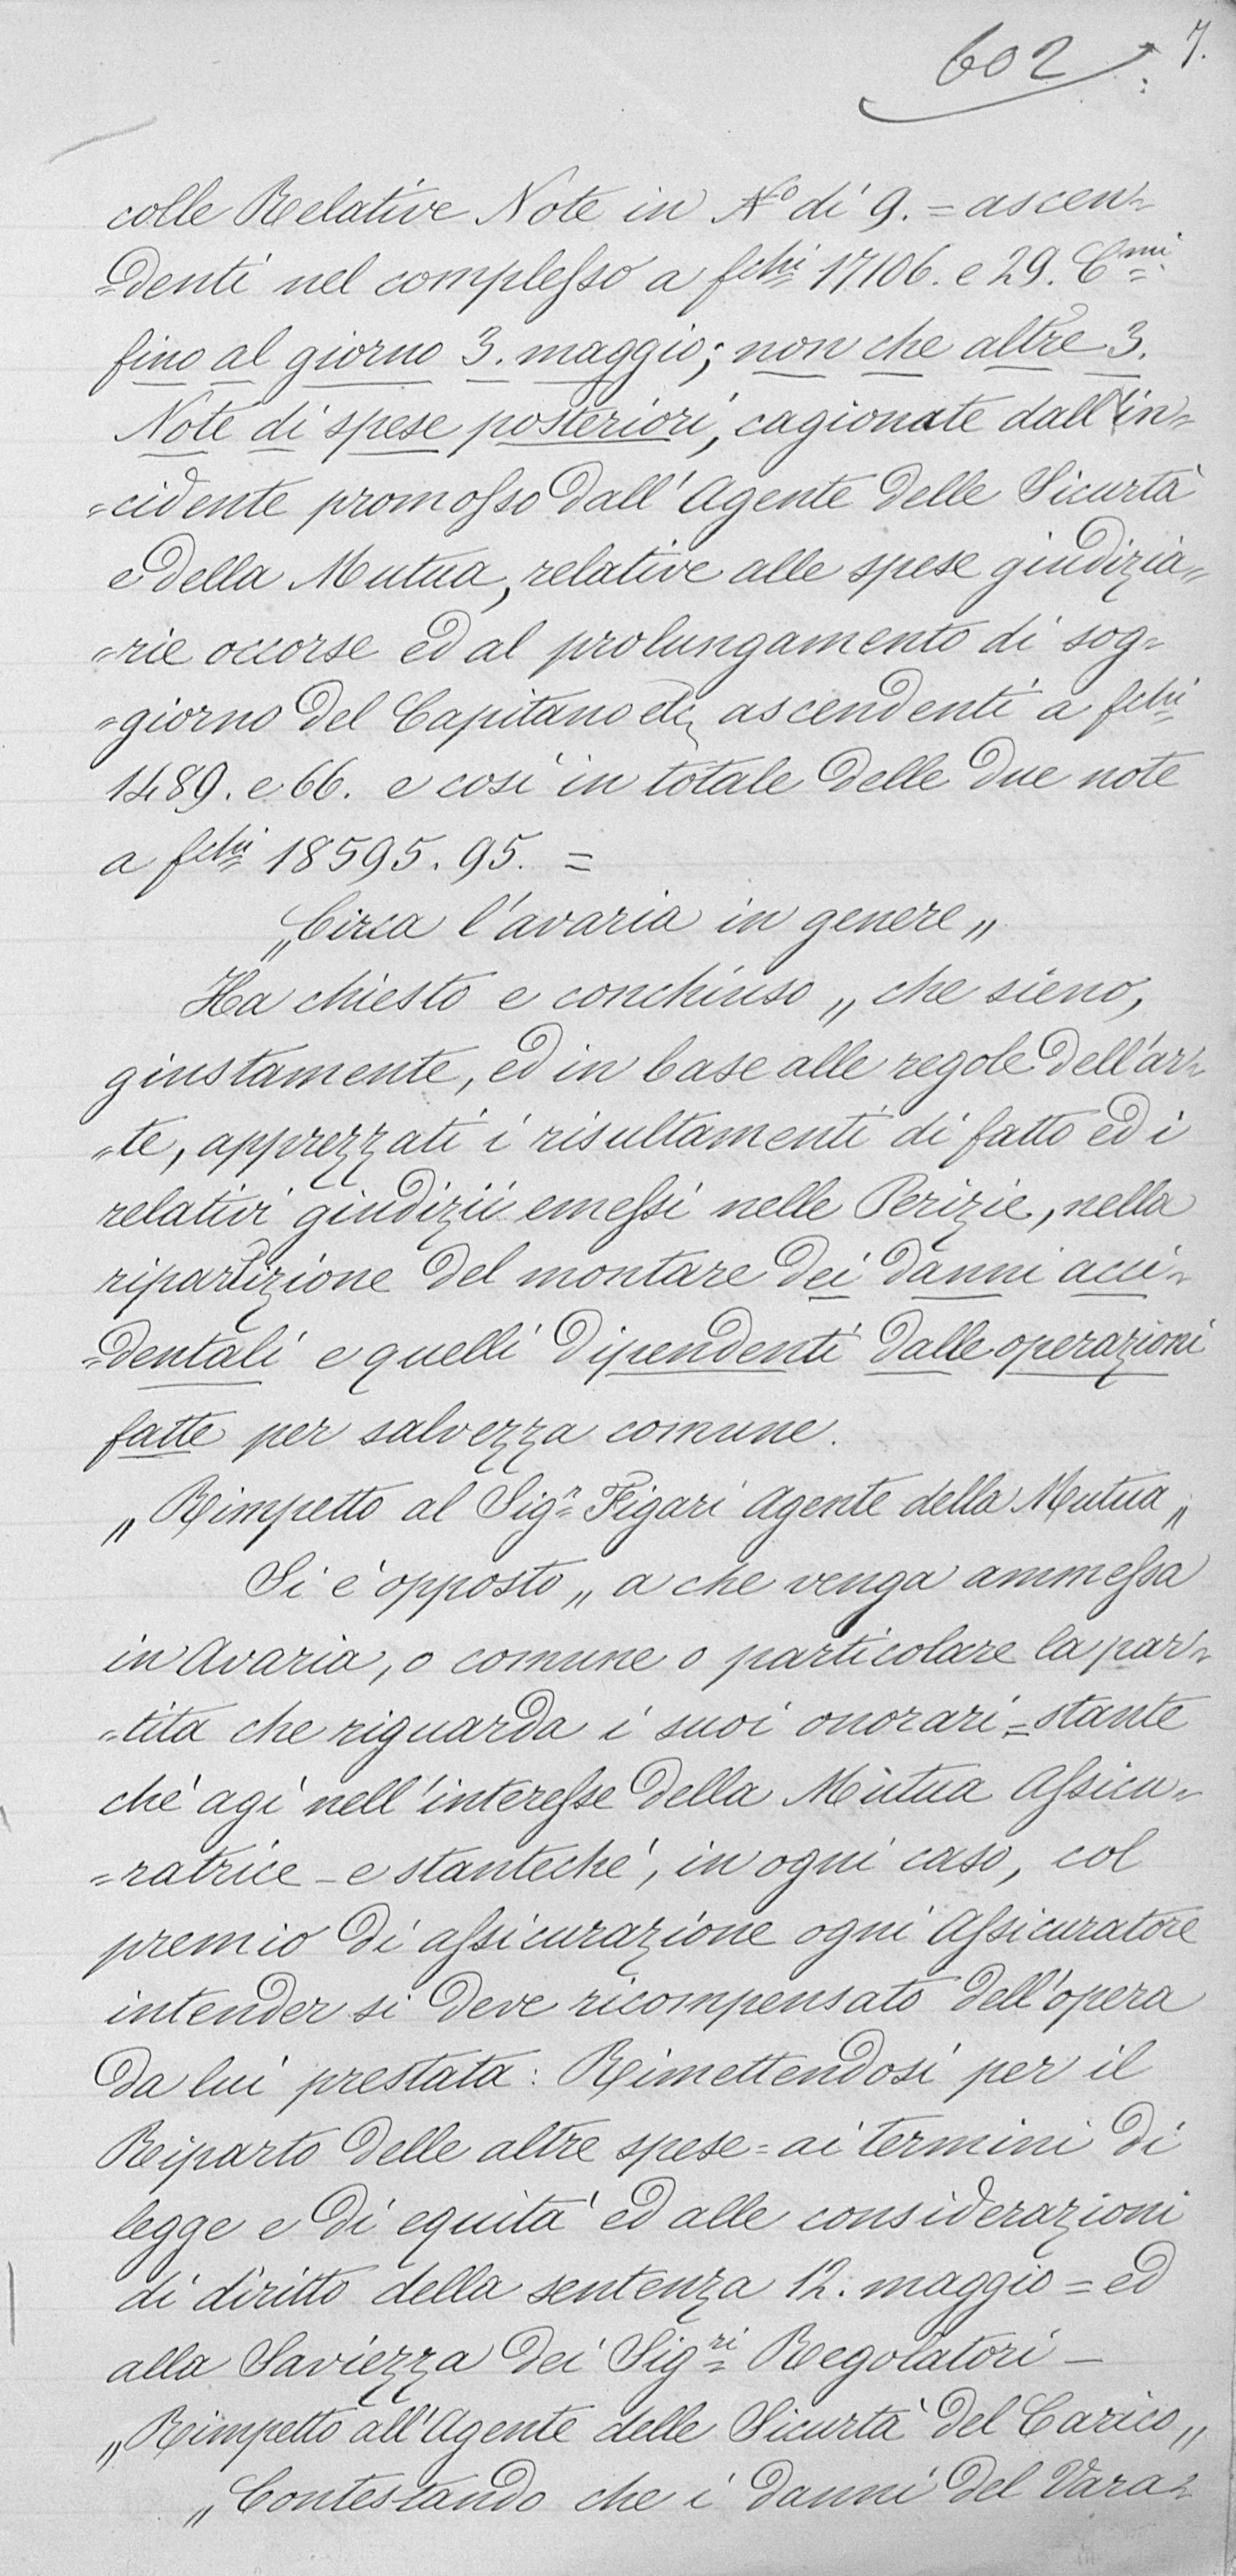 602 7.
colle Relative Note in N.º di 9. = ascen=
=denti nel complesso a fchi 17106. e 29. Cmi
fino al giorno 3. maggio; non che altre 3.
Note di spese posteriori, cagionate dall'in=
=cidente promosso dall'Agente delle Sicurtà
e della Mutua, relative alle spese giudizia=
=rie occorse ed al prolungamento di sog=
=giorno del Capitano etc, ascendenti a fchi
1489. e 66. e così in totale delle due note
a fchi 18595. 95. =
„Circa l'avaria in genere„
Ha chiesto e conchiuso „che sieno,
giustamente, ed in base alle regole dell'ar=
=te, apprezzati i risultamenti di fatto ed i
relativi giudizii emessi nelle Perizie, nella
ripartizione del montare dei danni acci=
=dentali e quelli dipendenti dalle operazioni
fatte per salvezza comune.
„Rimpetto al Sigr Figari Agente della Mutua„
Si è opposto „a che venga ammessa
in Avaria, o comune o particolare la par=
=tita che riguarda i suoi onorari = stante
chè agì nell'interesse della Mutua Assicu=
=ratrice - e stantechè, in ogni caso, col
premio di assicurazione ogni Assicuratore
intender si deve ricompensato dell'opera
da lui prestata: Rimettendosi per il
Riparto delle altre spese = ai termini di
legge e di equità ed alle considerazioni
di diritto della sentenza 12. maggio = ed
alla Saviezza dei Sigri Regolatori -
„Rimpetto all'Agente delle Sicurtà del Carico„
„Contestando che i danni del Vara=